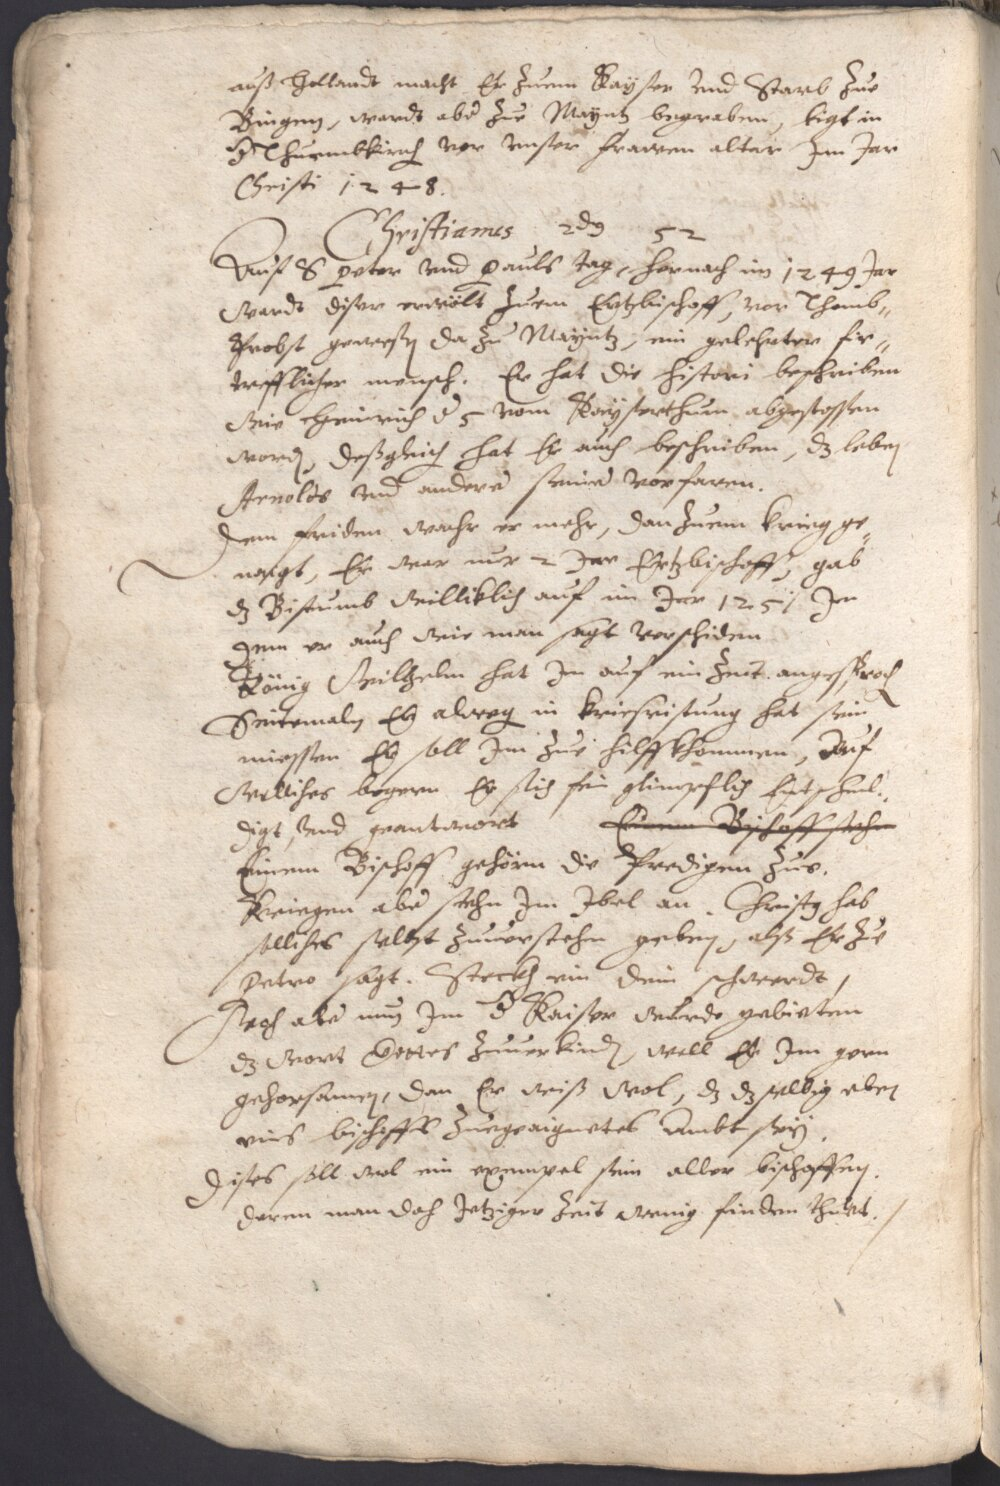 auß Hollandt macht Er zuem Kayser und Starb zue
Bingen, wardt aber zue Mayntz begraben, ligt in
d' Thuembkirch vor unser frawen altar Im Jar
Christi 1248.
Christianus 2dg 52
Auf S peter und Pauls tag, hernach im 1249 Jar
Wardt diser erwölt zuem Ertzbischoff, vor Thomb„
Probst gewesen da zu Mayntz, ein gelehrter für„
trefflicher mensch. Er hat die histori beschriben
wie Heinrich d' 5 vom Kayserthum abgestossen
word, deßgleich hat Er auch beschriben, dz leben
Arnoldi und anderer seiner vorfaren.
Dem friden wahr er mehr, dan zuem krieg ge„
naigt, Er war nur 2 Jar Ertzbischoff, gab
dz Bistumb williklich auf im Jar 1251 In
dem er auch wie man sagt verschiden
König Wilhelm hat In auf ein Zeit angesproch
Seitemaln Er alweg in kriegsristung hat sein
miessen Er soll Im zue hilff khommen, Auf
Welliches begern Er sich fein glimpflich Entschul„
digt, und geantwort Einem Bischoff stehn
Einem Bischoff gehörn die Predigen zue.
Kriegen aber stehn Im Ibel an. Christus hab
solliches selbst zuverstehn geben, alß Er zue
Petro sagt. Steckh ein dein schwerdt,
Doch aber nun Im d' Kaiser wurde gebieten
dz wort Gottes zuverkinden, well Er Im gern
gehorsamen, dan Er weiß wol, dz dz selbig eben
eins bischoffs zuegeaignetes Ambt sey.
Dises soll wol ein exempel sein aller bischoffen.
deren man doch Jetziger Zeit wenig finden thuet.